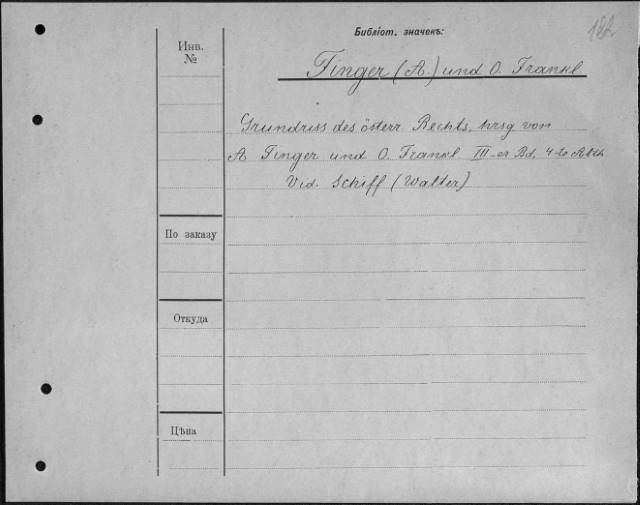 Библіот. значекъ:
182
Инв.
№
Finger (A.) und O. Frankl
Grundriss des österr. Rechts, hrsg von
A Finger und O. Frankl III-er Bd, 4-te Abth.
Vid. Schiff (Walter)
По заказу
Откуда
Цѣна